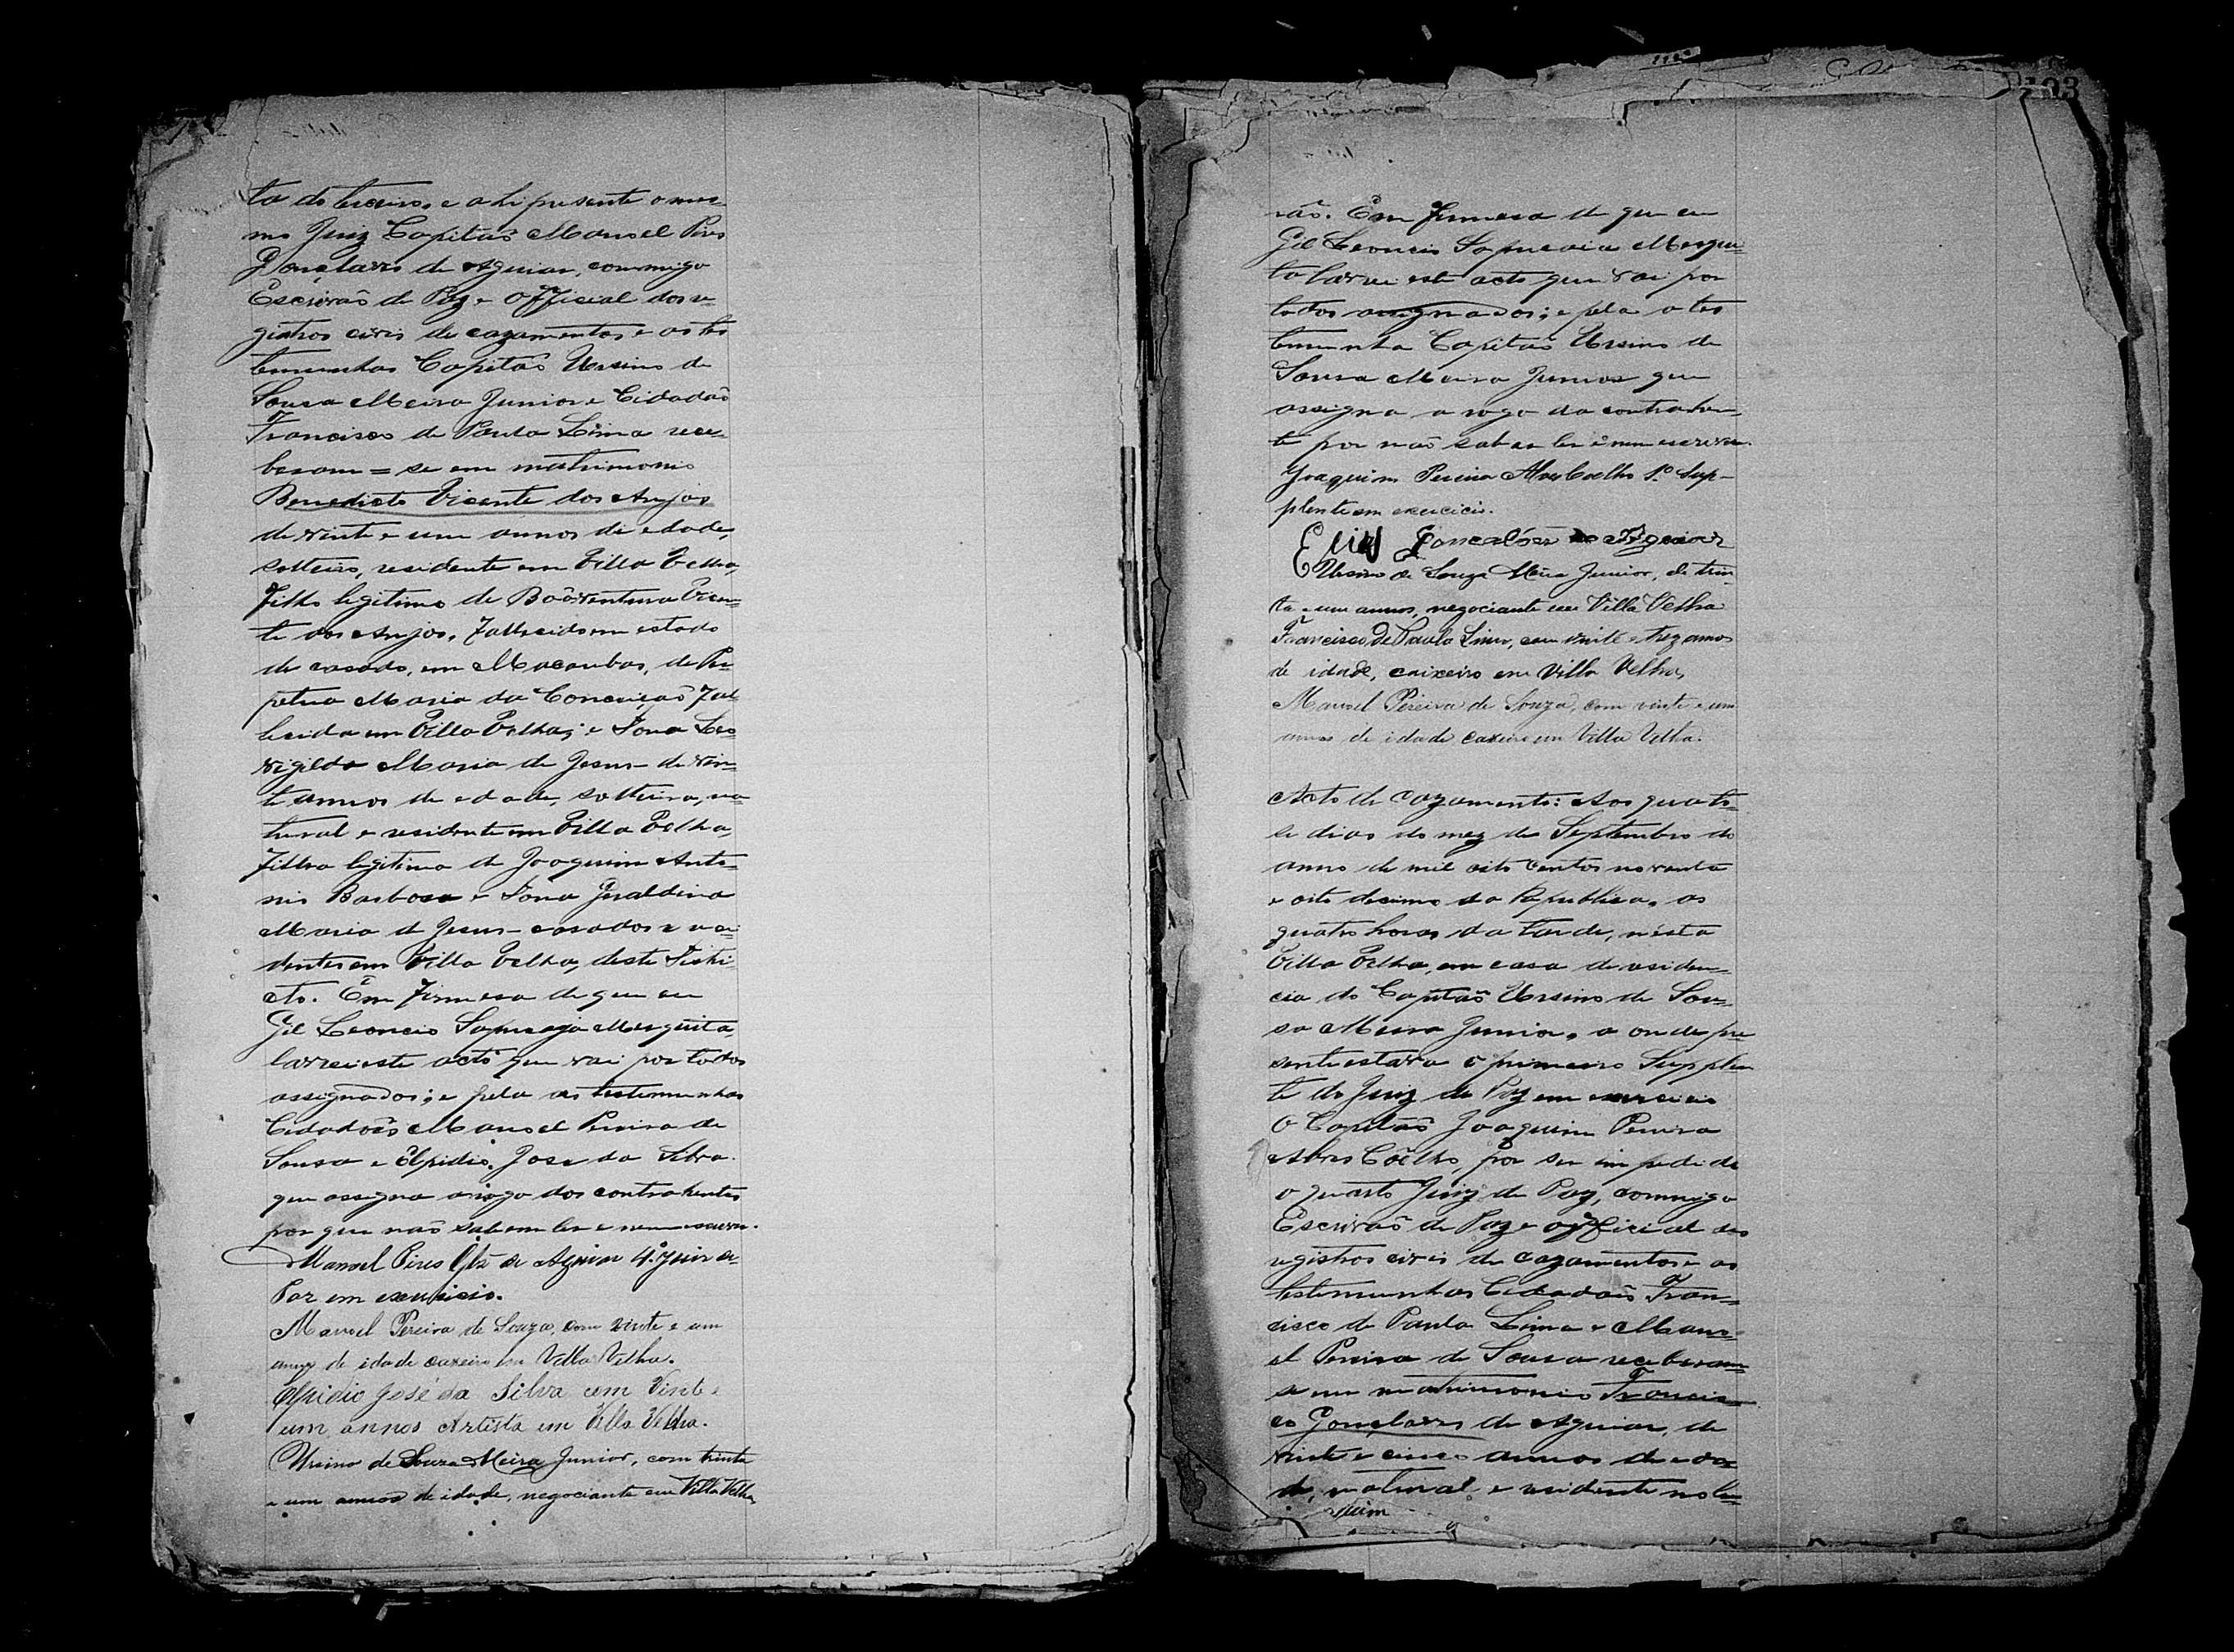 to do terceiro, e ahi presente o mes=
mo Juiz Capitaõ Manoel Pires
Gonçalves de Aguiar, commigo
Escrivaõ de Paz e Official dos re
gistros civis de cazamentos e as tes
temunhas Capitaõ Ursino de
Sousa Meira Junior e Cidadaõ
Francisco de Paula Lima rece=
beram=se em matrimonio
Benedicto Vicente dos Anjos
de vinte e um annos de edade,
solteiro, residente em Villa Velha,
filho legitimo de Boaventura Vicen=
te dos Anjos, fallecido em estado
de casado, em Macaubas, de Per
petua Maria da Conceiçaõ fal
lecida em Villa Velha; e Dona Leo
vigilda Maria de Jesus de vin=
te annos de edade, solteira, na=
tural e residente em Villa Velha,
filha legitima de Joaquim Anto=
nio Barbosa e Dona Geraldina
Maria de Jesus casados e resi
dentes em Villa Velha, deste Distri
cto. Em firmesa de que eu
Gil Leoncio Sapucaia Mesquita,
lavrei este acto que vai por todos
assignados; e pela as testemunhas
Cidadoẽs Manoel Pereira de
Sousa e Elpidio José da Silva
que assigna a rogo dos contrahentes
por que naõ sabem ler e nem escrever.
Manoel Pires Glz de Aguiar 4º Juiz de
Paz em exercicio.
Manoel Pereira de Souza, com vinte e um
annos de idade caxeiro em Villa Velha.
Elpidio José da Silva com Vinte e
um annos Artista em Villa Velha.
Ursino de Souza Meira Junior, com trinta
e um annos de idade, negociante em Villa Velha
103
vaõ. Em firmesa de que eu
Gil Leoncio Sapucaia Mesqui=
ta lavrei este acto que vai por
todos assignados; e pela a tes
temunha Capitaõ Ursino de
Sousa Meira Junior que
assigna a rogo da contrahen
te por naõ saber ler e nem escrever.
Joaquim Pereira Alves Coelho 1º Sup-
plente em exercicio.
Gonçalves de Aguiar
Ursino de Souza Meira Junior, de trin
ta e um annos, negociante em Villa Velha
Francisco de Paula Lima, com vinte e trez annos
de idade, caixeiro em Villa Velha,
Manoel Pereira de Souza, com vinte e um
annos de idade caxeiro em Villa Velha.
Acto de Cazamento: Aos quator=
se dias do mez de Septembro do
anno de mil oito centos noventa
e oito decimo da Republica, as
quatro horas da tarde, nesta
Villa Velha, em casa de residen=
cia do Capitaõ Ursino de Sou=
sa Meira Junior, a onde pre
sente estava o primeiro Supplen
te do Juiz de Paz em exercicio
O Capitaõ Joaquim Pereira
Alves Coêlho, por ser impedido
o quarto Juiz de Paz, commigo
Escrivaõ de Paz e official dos
registros civis de cazamentos e as
testemunhas Cidadoẽs Fran=
cisco de Paula Lima e Mano=
el Pereira de Sousa receberam
se em matrimonio Francis=
co Gonçalves de Aguiar, de
vinte e cinco annos de eda=
de, natural e residente no